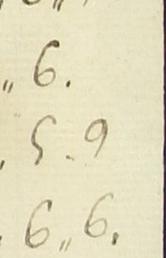 „ 6.
. 5. 9
. 6 „ 6.